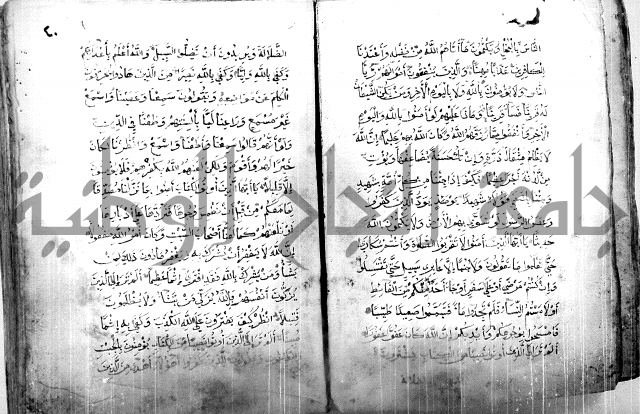 الناس بالبخل ويكتمون ما آتاهم الله من فضله واعتدنا
للكافرين عذابا مهينا والذين ينفقون اموالهم رئاء
الناس ولا يؤمنون بالله ولا باليوم الآخر ومن يكن الشيطان
له قرينا فساء قرينا وماذا عليهم لو آمنوا بالله واليوم
الآخر وانفقوا مما رزقهم الله وكان الله بهم عليما ان الله
لا يظلم مثقال ذرة وان تك حسنة يضاعفها ويؤت
من لدنه اجرا عظيما فكيف اذا جئنا من كل امة بشهيد
وجئنا بك على هؤلاء شهيدا يومئذ يود الذين كفروا
وعصوا الرسول لو تسوى بهم الارض ولا يكتمون الله
حديثا يا ايها الذين آمنوا لا تقربوا الصلوة وانتم سكارى
حتى تعلموا ما تقولون ولا جنبا الا عابري سبيل حتى تغتسلوا
وان كنتم مرضى او على سفر او جاء احد منكم من الغائط
او لامستم النساء فلم تجدوا ماء فتيمموا صعيدا طيبا
فامسحوا بوجوهكم وايديكم ان الله كان عفوا غفورا
الم تر الى الذين اوتوا نصيبا من الكتاب يشترون
الضلالة
٢٠
الضلالة ويريدون ان تضلوا السبيل والله اعلم باعدائكم
وكفى بالله وليا وكفى بالله نصيرا من الذين هادوا يحرفون
الكلم عن مواضعه ويقولون سمعنا وعصينا واسمع
غير مسمع وراعنا ليا بالسنتهم وطعنا في الدين
ولو انهم قالوا سمعنا واطعنا واسمع وانظرنا لكان
خيرا لهم واقوم ولكن لعنهم الله بكفرهم فلا يؤمنون
الا قليلا يا ايها الذين اوتوا الكتاب آمنوا بما نزلنا مصدقا
لما معكم من قبل ان نطمس وجوها فنردها على ادبارها
او نلعنهم كما لعنا اصحاب السبت وكان امر الله مفعولا
ان الله لا يغفر ان يشرك به ويغفر ما دون ذلك لمن
يشاء ومن يشرك بالله فقد افترى اثما عظيما الم تر الى الذين
يزكون انفسهم بل الله يزكي من يشاء ولا يظلمون
فتيلا انظر كيف يفترون على الله الكذب وكفى به اثما
مبينا الم تر الى الذين اوتوا نصيبا من الكتاب يؤمنون بالجبت
والطاغوت ويقولون للذين كفروا هؤلاء اهدى من الذين
جامعة النجاح الوطنية